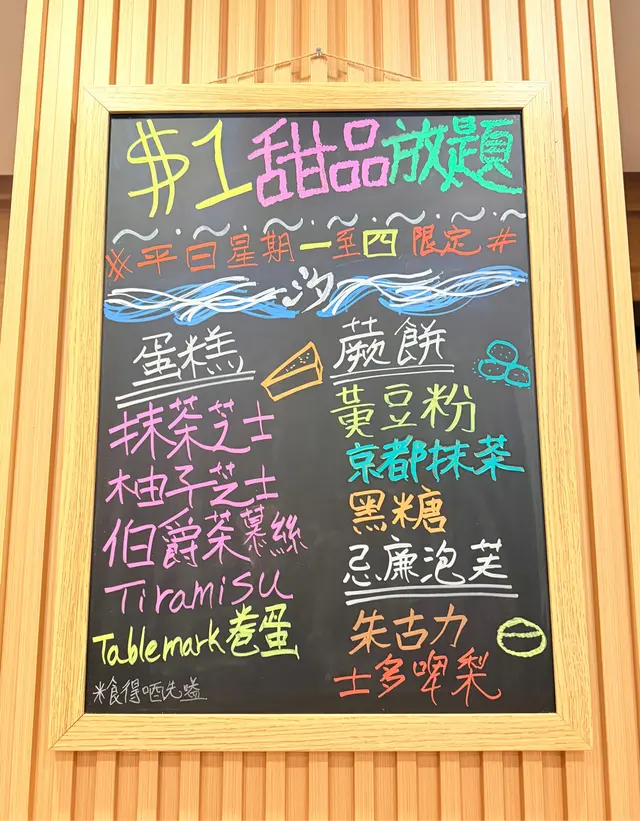 $1甜品放題
※平日星期一至四限定#
汐
蛋糕
抹茶芝士
柚子芝士
伯爵茶慕絲
Tiramisu
Tablemark卷蛋
蕨餅
黃豆粉
京都抹茶
黑糖
忌廉泡芙
朱古力
士多啤梨
*食得哂先嗌